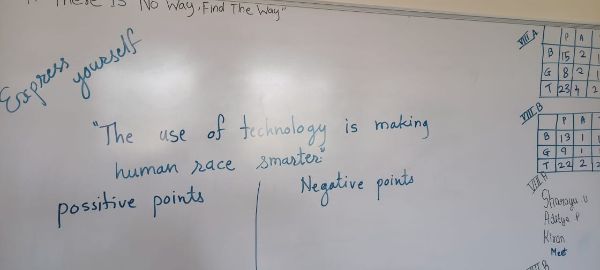 There Is No Way, Find The Way"
Express
yourself
"The use of technology is making
human race smarter."
possitive points
Negative points
VIII A
P A
B 15 2
G 8 2
T 23 4 2
VIII B
P A
B 13 1
G 9 1
T 22 2
VIII A
Sharayu U
Aditya P
Kiran
Meet
VIII B